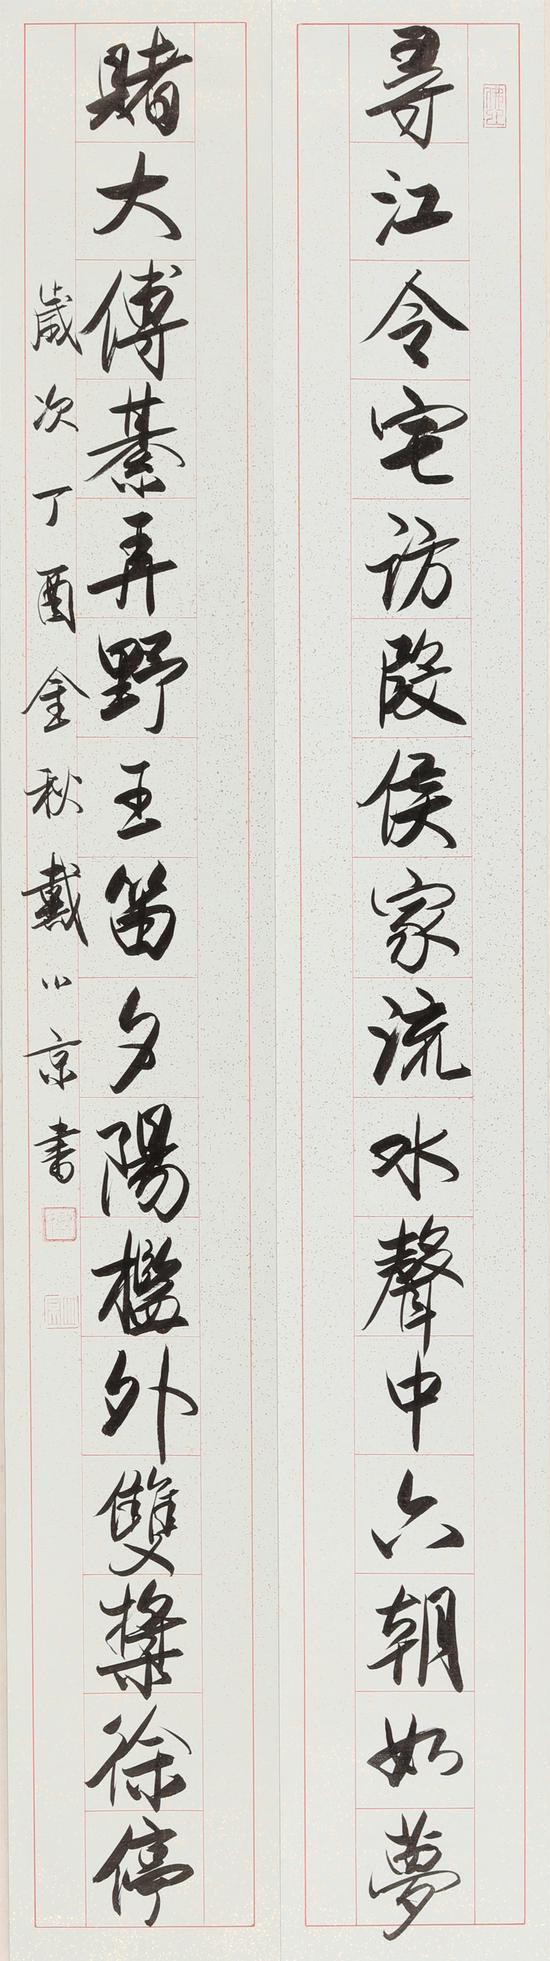 尋江令宅訪段侯家流水聲中六朝如夢
賭大傅棊弄野王笛夕陽檻外雙槳徐停
歲次丁酉金秋戴小京書